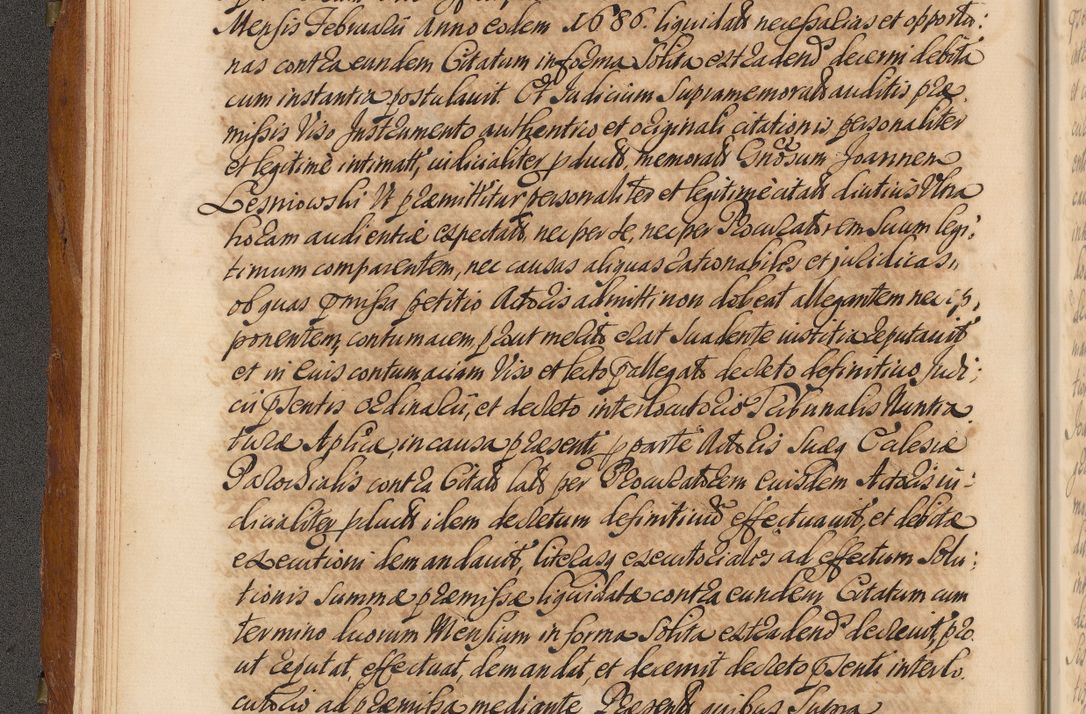 Mensis Februarii Anno eodem 1686. liquidatt necessarias et opportu:
nas contra eundem Citatum in forma solita extradend decerni debita
cum instantia postulavit. Et Judicium supramemoratt auditis præ,
missis Viso Instrumento authentico et originali citationis personaliter
et legitimè intimatt, iudicialiter pductt, memoratt Gnosum Joannem
Lesniowski Ut præmittitur personaliter et legitimè citatt diutius Ultra
horam audientiæ expectatt, nec per se, nec per Procuratorem suum legi:
timum comparentem, nec causas aliquas rationabiles et juridicas,
ob quas pmissa petitio Actoris admitti non debeat allegantem nec
ponentem, contumacem, prout meritt erat suadente iustitia reputavit
et in eius contumaciam Viso et lecto pallegatt decreto definitivo Judi:
cii psentis ordinarii, et decreto interlocutorio Tribunalis Nuntia
turæ Aplicæ, in causa præsenti p parte Actoris suæq Ecclesiæ
Parochialis contra Citatt latt per Procuratorem eiusdem Actoris iu:
dicialiter pductt idem decretum definitivum effectuavit, et debitæ
executioni demandavit, literasq executoriales ad effectum solu:
tionis summæ præmissæ liquidatæ contra eundem Citatum cum
termino duorum Mensium in forma solita extradend decrevit, pro
ut reputat, effectuat, demandat, et decernit decreto psenti interlo
cutorio ad præmissa mediante. Præsentt quibus supra